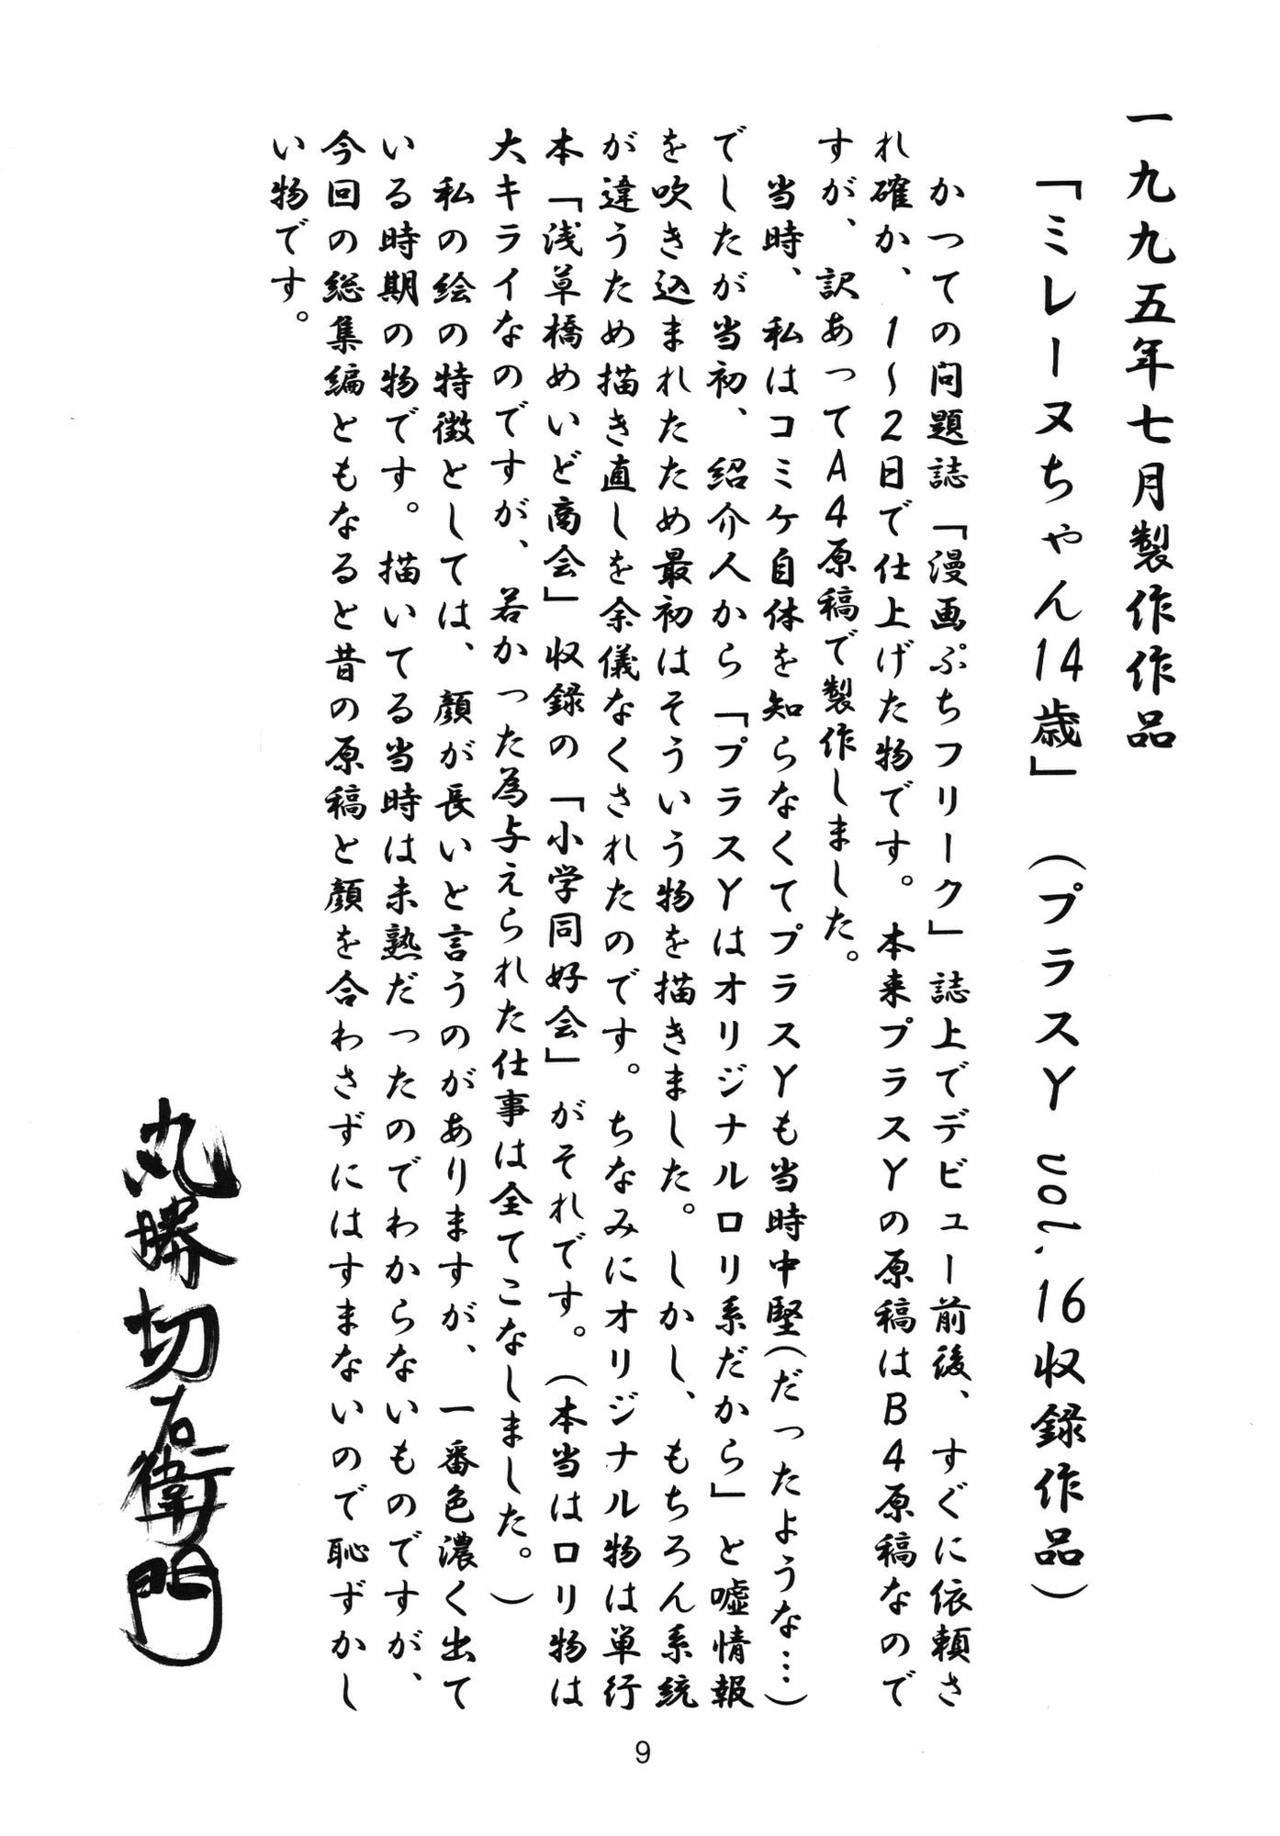 一九九五年七月製作作品
「ミレーヌちゃん14歳」（プラスY vol.16収録作品）
かつての問題誌「漫画ぷちフリーク」誌上でデビュー前後、すぐに依頼さ
れ確か、1～2日で仕上げた物です。本来プラスYの原稿はB4原稿なので
すが、訳あってA4原稿で製作しました。
当時、私はコミケ自体を知らなくてプラスYも当時中堅(だったような…)
でしたが当初、紹介人から「プラスYはオリジナルロリ系だから」と嘘情報
を吹き込まれたため最初はそういう物を描きました。しかし、もちろん系統
が違うため描き直しを余儀なくされたのです。ちなみにオリジナル物は単行
本「浅草橋めいど商会」収録の「小学同好会」がそれです。(本当はロリ物は
大キライなのですが、若かった為与えられた仕事は全てこなしました。)
私の絵の特徴としては、顔が長いと言うのがありますが、一番色濃く出て
いる時期の物です。描いてる当時は未熟だったのでわからないものですが、
今回の総集編ともなると昔の原稿と顔を合わさずにはすまないので恥ずかし
い物です。
丸勝切右衛門
9